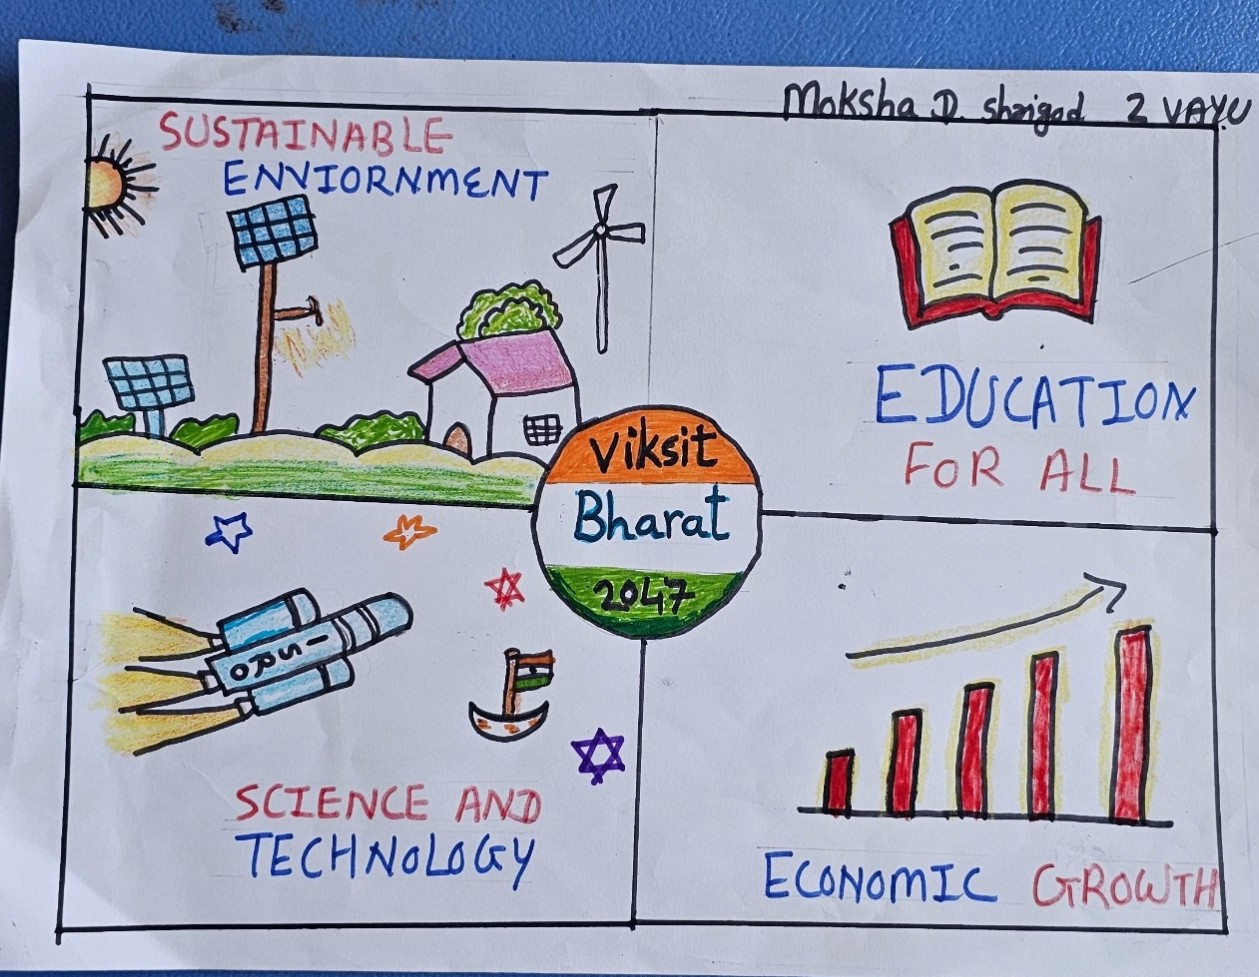 Moksha D. shrigod 2 VAYU
SUSTAINABLE
ENVIORNMENT
EDUCATION
FOR ALL
Viksit
Bharat
2047
ISRO
SCIENCE AND
TECHNOLOGY
ECONOMIC GROWTH